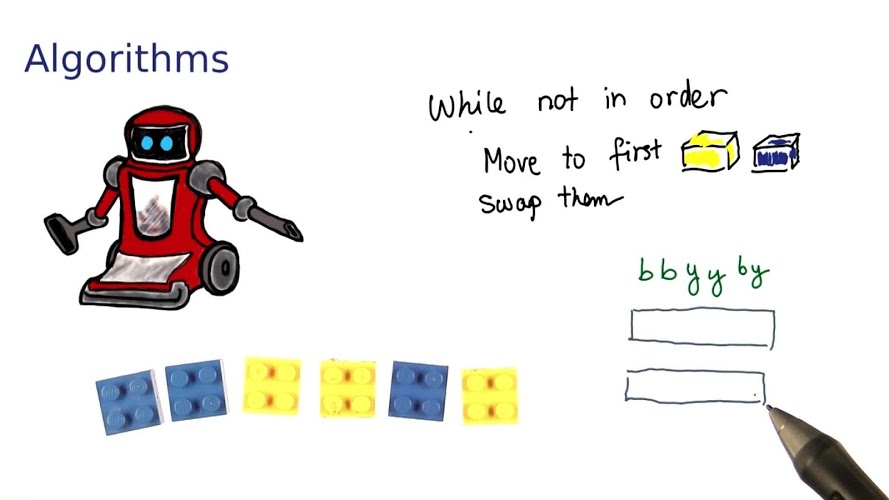 Algorithms
While not in order
Move to first
swap them
b b y y b y